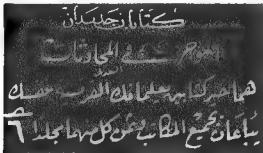 كتابان جديدان
في المحادثات
هما خير كتابين يعلمانك الفرنسية بنفسك
يباعان بجميع المكاتب وثمن كل منهما مجلدا ٦